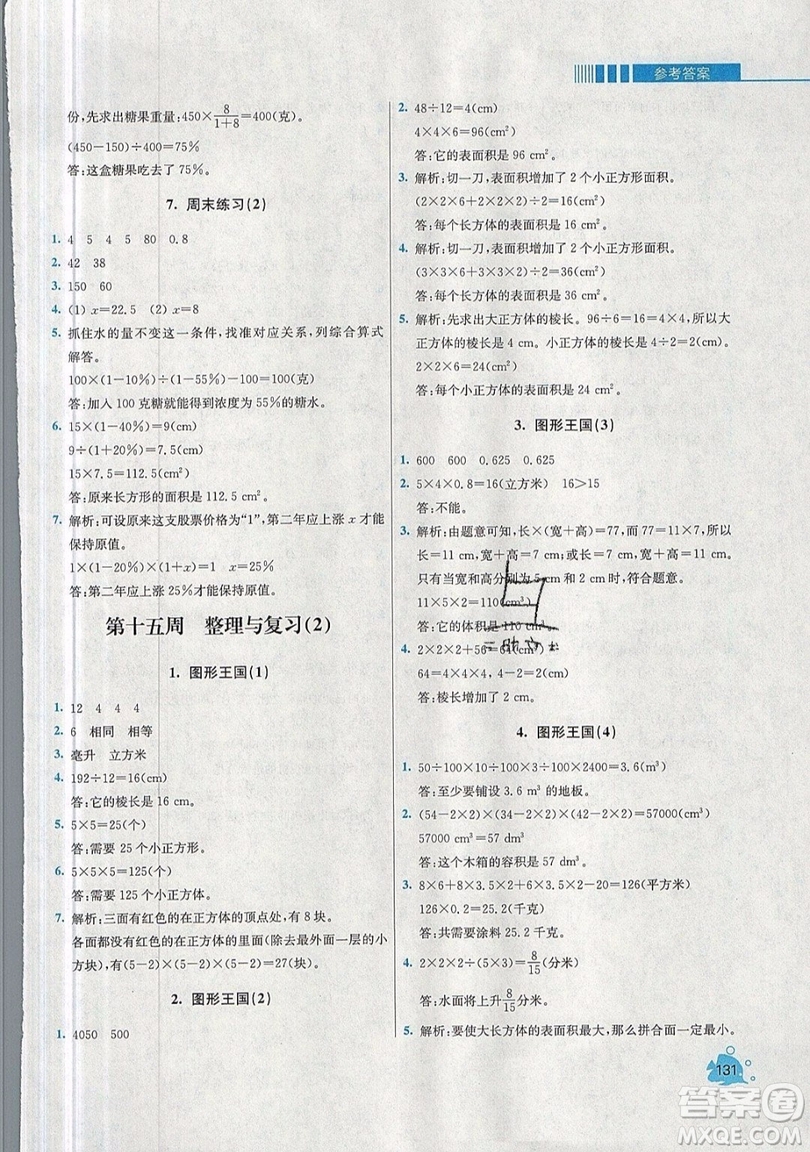 参考答案
份,先求出糖果重量:450×8/(1+8)=400(克)。
(450-150)÷400=75%
答:这盒糖果吃去了 75%。
7. 周末练习(2)
1. 4 5 4 5 80 0.8
2. 42 38
3. 150 60
4. (1) x=22.5 (2) x=8
5. 抓住水的量不变这一条件,找准对应关系,列综合算式
解答。
100×(1-10%)÷(1-55%)-100=100(克)
答:加入 100 克糖就能得到浓度为 55%的糖水。
6. 15×(1-40%)=9(cm)
9÷(1+20%)=7.5(cm)
15×7.5=112.5(cm²)
答:原来长方形的面积是 112.5 cm²。
7. 解析:可设原来这支股票价格为“1”,第二年应上涨 x 才能
保持原值。
1×(1-20%)×(1+x)=1 x=25%
答:第二年应上涨 25%才能保持原值。
第十五周 整理与复习(2)
1. 图形王国(1)
1. 12 4 4 4
2. 6 相同 相等
3. 毫升 立方米
4. 192÷12=16(cm)
答:它的棱长是 16 cm。
5. 5×5=25(个)
答:需要 25 个小正方形。
6. 5×5×5=125(个)
答:需要 125 个小正方体。
7. 解析:三面有红色的在正方体的顶点处,有 8 块。
各面都没有红色的在正方体的里面(除去最外面一层的小
方块),有(5-2)×(5-2)×(5-2)=27(块)。
2. 图形王国(2)
1. 4050 500
2. 48÷12=4(cm)
4×4×6=96(cm²)
答:它的表面积是 96 cm²。
3. 解析:切一刀,表面积增加了 2 个小正方形面积。
(2×2×6+2×2×2)÷2=16(cm²)
答:每个长方体的表面积是 16 cm²。
4. 解析:切一刀,表面积增加了 2 个小正方形面积。
(3×3×6+3×3×2)÷2=36(cm²)
答:每个长方体的表面积是 36 cm²。
5. 解析:先求出大正方体的棱长。96÷6=16=4×4,所以大
正方体的棱长是 4 cm。小正方体的棱长是 2 cm。
2×2×6=24(cm²)
答:每个小正方体的表面积是 24 cm²。
3. 图形王国(3)
1. 600 600 0.625 0.625
2. 5×4×0.8=16(立方米) 16>15
答:不能。
3. 解析:由题意可知,长×(宽+高)=77,而 77=11×7,所以
长=11 cm,宽+高=7 cm;或长=7 cm,宽+高=11 cm。
只有当宽和高分别为 5 cm和 2 cm时,符合题意。
11×5×2=110(cm³)
答:它的体积是 110 cm³。
4. 2×2×2+56=64(cm³)
64=4×4×4,4-2=2(cm)
答:棱长增加了 2 cm。
4. 图形王国(4)
1. 50÷100×10÷100×3÷100×2400=3.6(m³)
答:至少要铺设 3.6 m³的地板。
2. (54-2×2)×(34-2×2)×(42-2×2)=57000(cm³)
57000 cm³=57 dm³
答:这个木箱的容积是 57 dm³。
3. 8×6+8×3.5×2+6×3.5×2-20=126(平方米)
126×0.2=25.2(千克)
答:共需要涂料 25.2 千克。
4. 2×2×2÷(5×3)=8/15(分米)
答:水面将上升8/15分米。
5. 解析:要使大长方体的表面积最大,那么拼合面一定最小。
131
答案圈
MXQE.COM